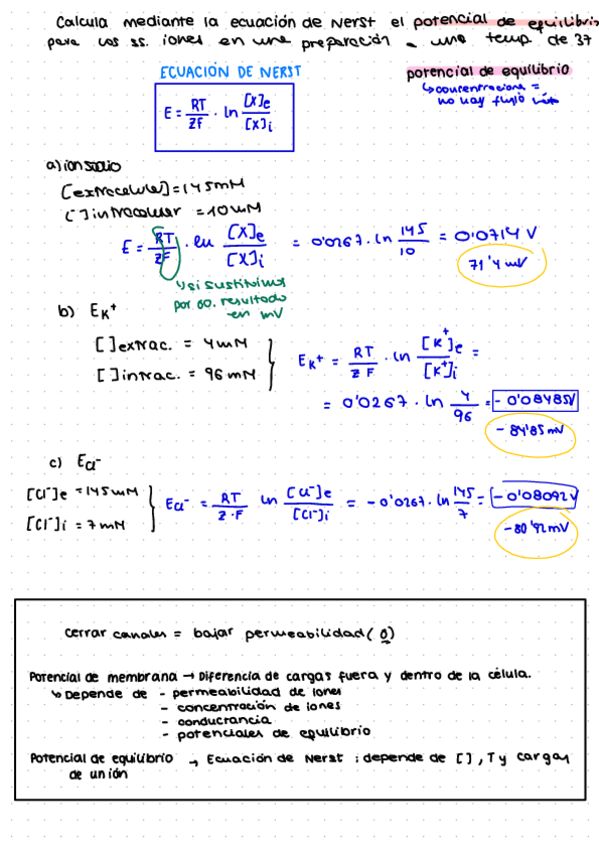 Calcula mediante la ecuación de Nerst el potencial de equilibrio
para los ss. iones en una preparación a una temp de 37
ECUACIÓN DE NERST
E = RT/ZF · ln [X]e/[X]i
potencial de equilibrio
↳ concentracions =
no hay flujo
a) ion sodio
[extracelular] = 145mM
[ ] intracelular = 10mM
E = RT/ZF · ln [X]e/[X]i = 0'0267 · ln 145/10 = 0'0714 V
71'4 mV
↳ si sustituimos
por 60. resultado
en mV
b) EK+
[ ]extrac. = 4mM
[ ]intrac. = 96mM
EK+ = RT/ZF · ln [K+]e/[K+]i =
= 0'0267 · ln 4/96 = - 0'08485V
- 84'85 mV
c) ECl-
[Cl-]e = 145mM
[Cl-]i = 7mM
ECl- = RT/Z·F ln [Cl-]e/[Cl-]i = -0'0267 · ln 145/7 = -0'08092V
-80'92mV
cerrar canales = bajar permeabilidad (0)
Potencial de membrana → Diferencia de cargas fuera y dentro de la célula.
↳ Depende de - permeabilidad de iones
- concentración de iones
- conductancia
- potenciales de equilibrio
Potencial de equilibrio → Ecuación de Nerst : depende de [], T y cargas
de un ión